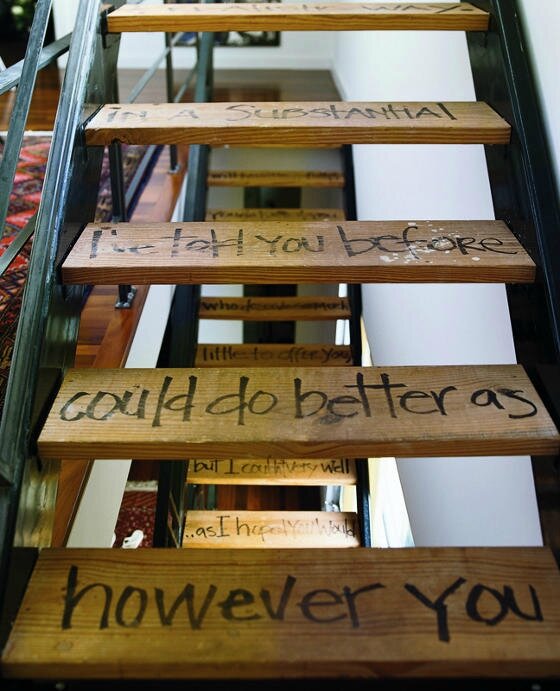 WAY
in a Substantial
I've told you before
little to offer you,
could do better as
but I couldn't very well
..as I hoped you would
however you